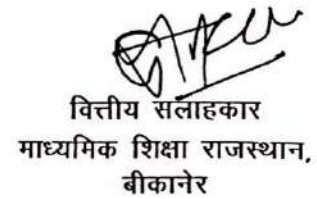 वित्तीय सलाहकार
माध्यमिक शिक्षा राजस्थान,
बीकानेर